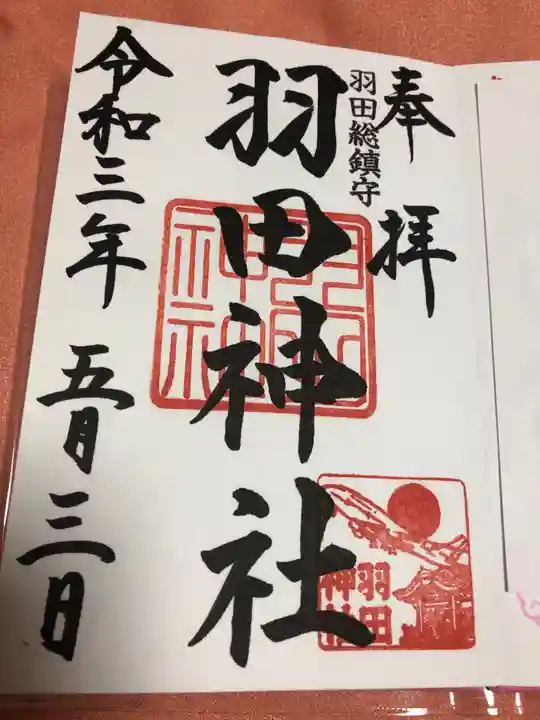 奉拝
羽田総鎮守
羽田神社
羽田神社
羽田
神社
令和三年 五月三日